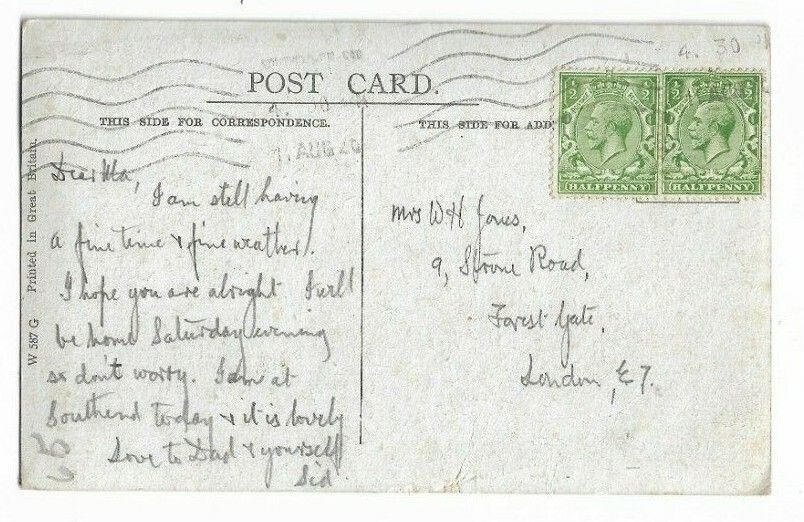 4. 30
POST CARD.
THIS SIDE FOR CORRESPONDENCE.
THIS SIDE FOR ADD
HALFPENNY
HALFPENNY
W 587 G Printed in Great Britain.
Dear Ma,
I am still having
a fine time & fine weather.
I hope you are alright I will
be home Saturday evening
so don't worry. I am at
Southend today & it is lovely
Love to Dad & yourself
Sid
Mrs W H Jones,
9, Road,
Forest Gate,
London, E7.